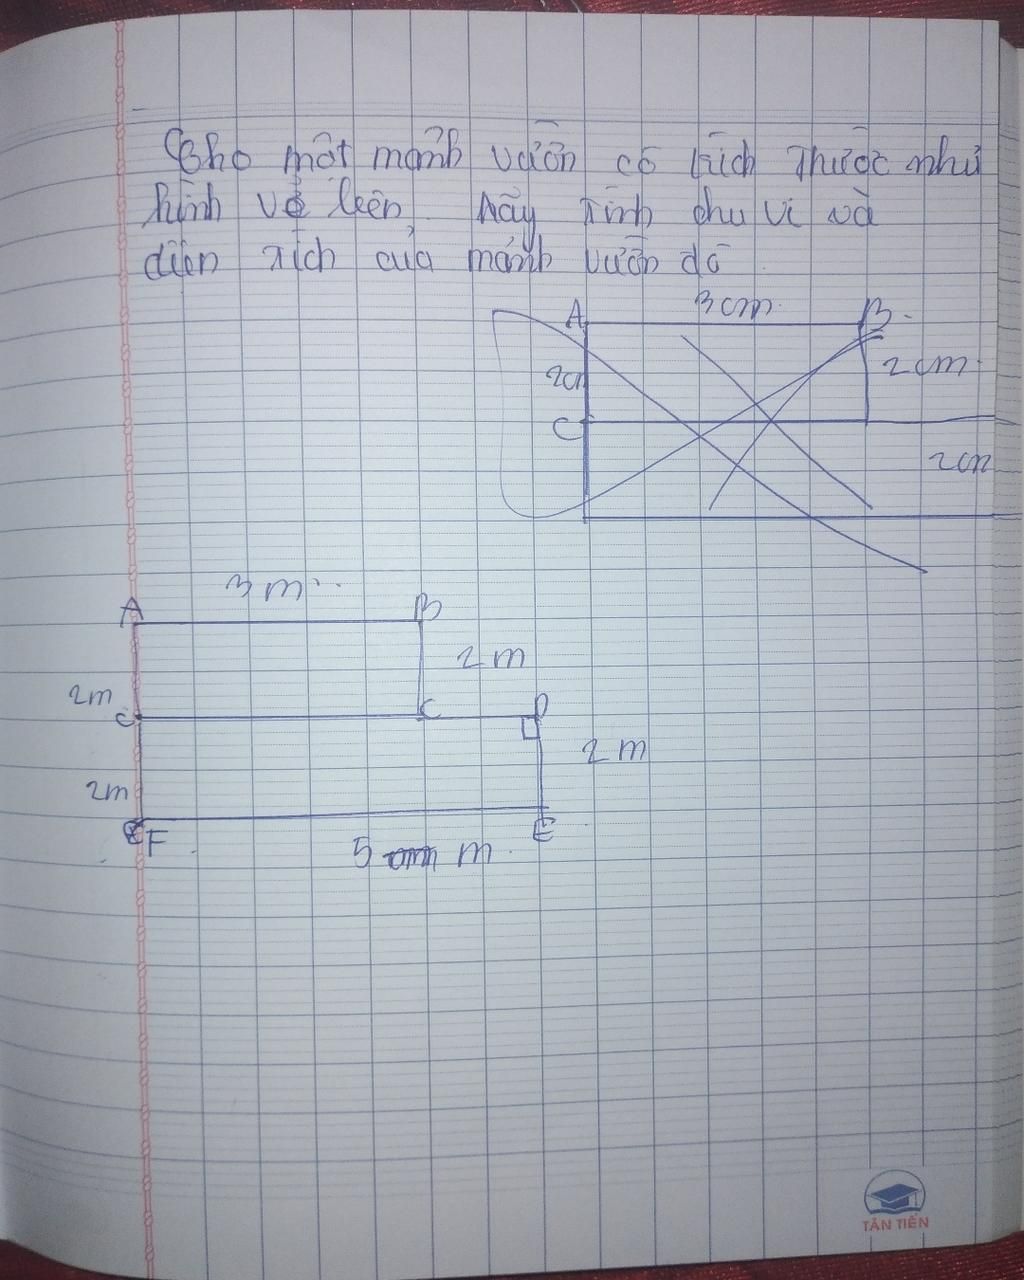 Cho một mảnh vườn có kích thước như
hình vẽ bên. Hãy tính chu vi và
diện tích của mảnh vườn đó
A 3cm B
2cm 2cm
C
2cm
3 m
A B
2 m
2m
C C D
2 m
2m
F E
5 m
TÂN TIẾN